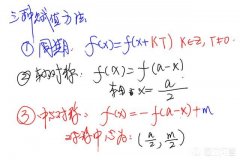 三种赋值方法:
① 周期: f(x)=f(x+KT) K∈Z, T≠0.
② 轴对称: f(x)=f(a-x)
x=a/2
③ 中心对称: f(x)=-f(a-x)+m
对称中心为: (a/2, m/2)